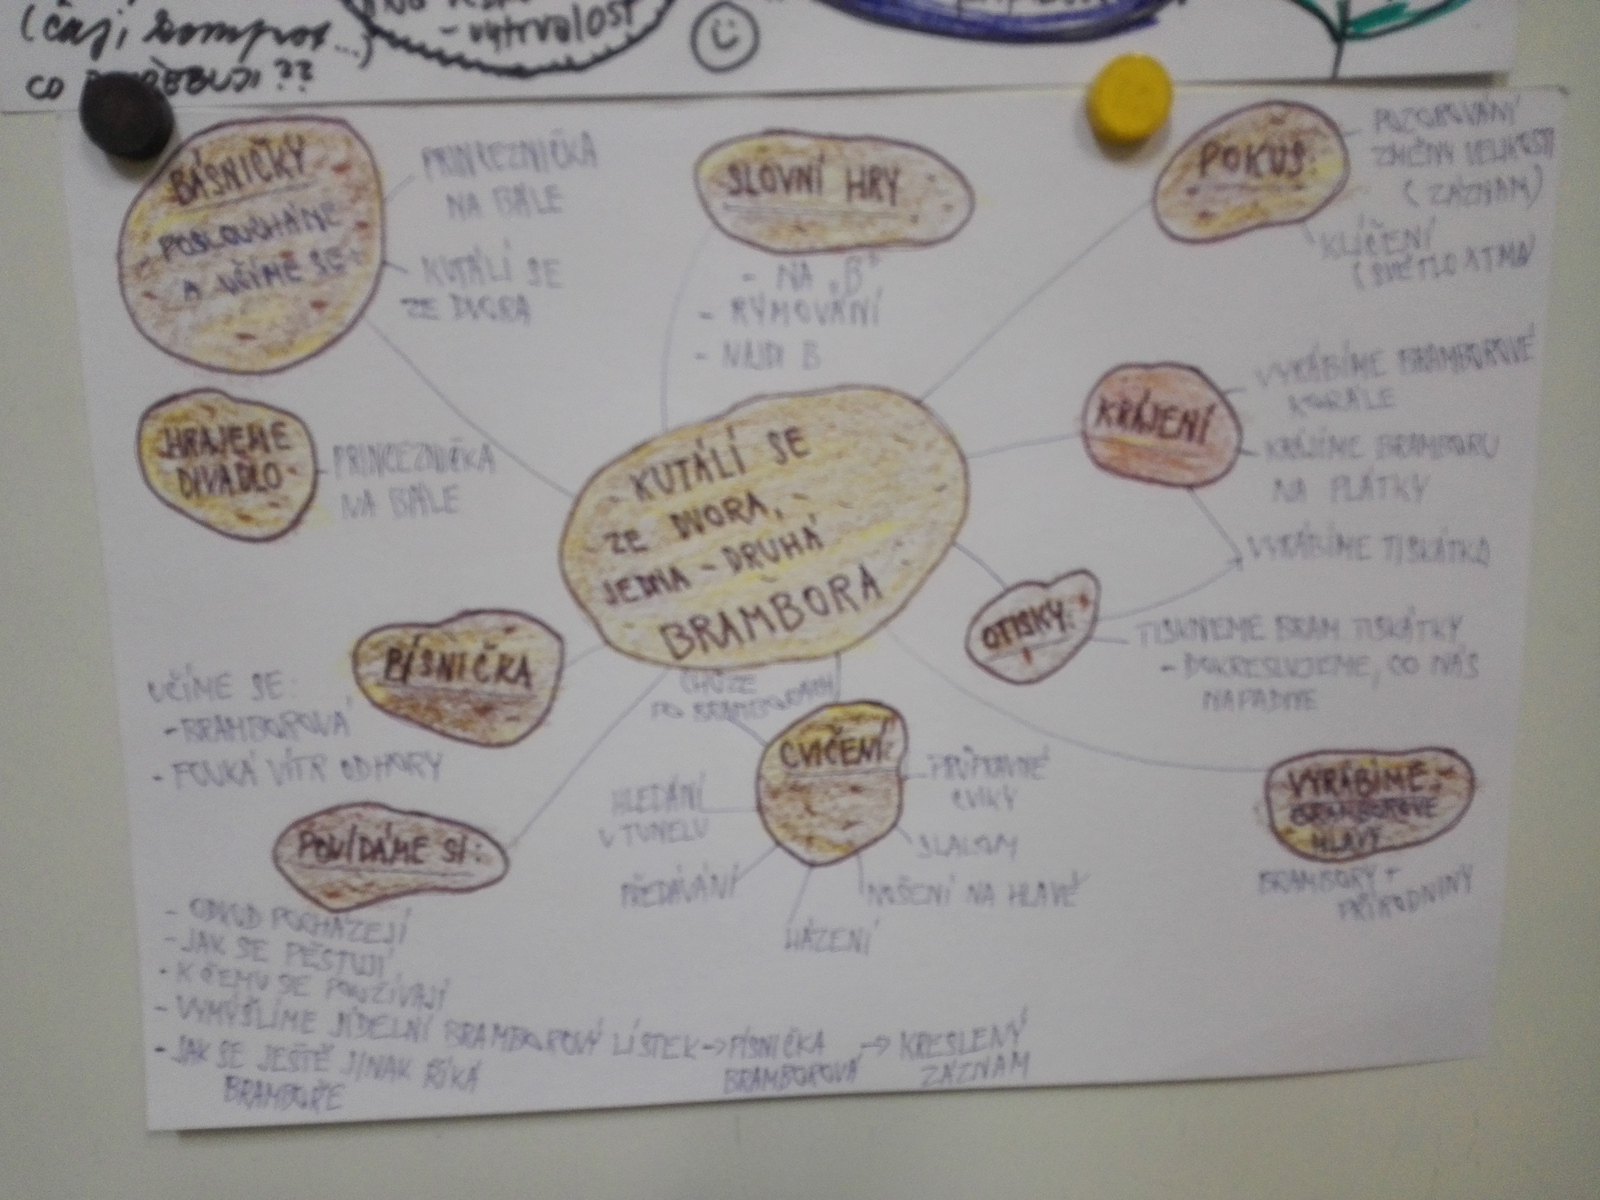 (čaj, kompot...)
CO
??
- vytrvalost
BÁSNIČKY
POSLOUCHÁME
A UČÍME SE:
PRINCEZNIČKA
NA BÁLE
KUTÁLÍ SE
ZE DVORA
SLOVNÍ HRY
- NA „B"
- RÝMOVÁNÍ
- NAJDI B
POKUS:
POZOROVÁNÍ
ZMĚNY VELIKOSTI
(ZÁZNAM)
KLÍČENÍ
(SVĚTLO X TMA)
HRAJEME
DIVADLO
PRINCEZNIČKA
NA BÁLE
KUTÁLÍ SE
ZE DVORA,
JEDNA - DRUHÁ
BRAMBORA
KRÁJENÍ
VYRÁBÍME BRAMBOROVÉ
KORÁLE
KRÁJÍME BRAMBORU
NA PLÁTKY
VYRÁBÍME TISKÁTKO
OTISKY:
TISKNEME BRAM. TISKÁTKY
- DOKRESLUJEME, CO NÁS
NAPADNE
PÍSNIČKA
UČÍME SE:
- BRAMBOROVÁ
- FOUKÁ VÍTR OD HORY
CHŮZE
PO BRAMBORÁCH
CVIČENÍ:
HLEDÁNÍ
V TUNELU
PŘEDÁVÁNÍ
HÁZENÍ
PRŮPRAVNÉ
CVIKY
SLALOM
NOŠENÍ NA HLAVĚ
VYRÁBÍME:
BRAMBOROVÉ
HLAVY
BRAMBORY +
PŘÍRODNINY
POVÍDÁME SI:
- ODKUD POCHÁZEJÍ
- JAK SE PĚSTUJÍ
- K ČEMU SE POUŽÍVAJÍ
- VYMÝŠLÍME JÍDELNÍ BRAMBOROVÝ LÍSTEK → PÍSNIČKA BRAMBOROVÁ → KRESLENÝ ZÁZNAM
- JAK SE JEŠTĚ JINAK ŘÍKÁ
BRAMBOŘE